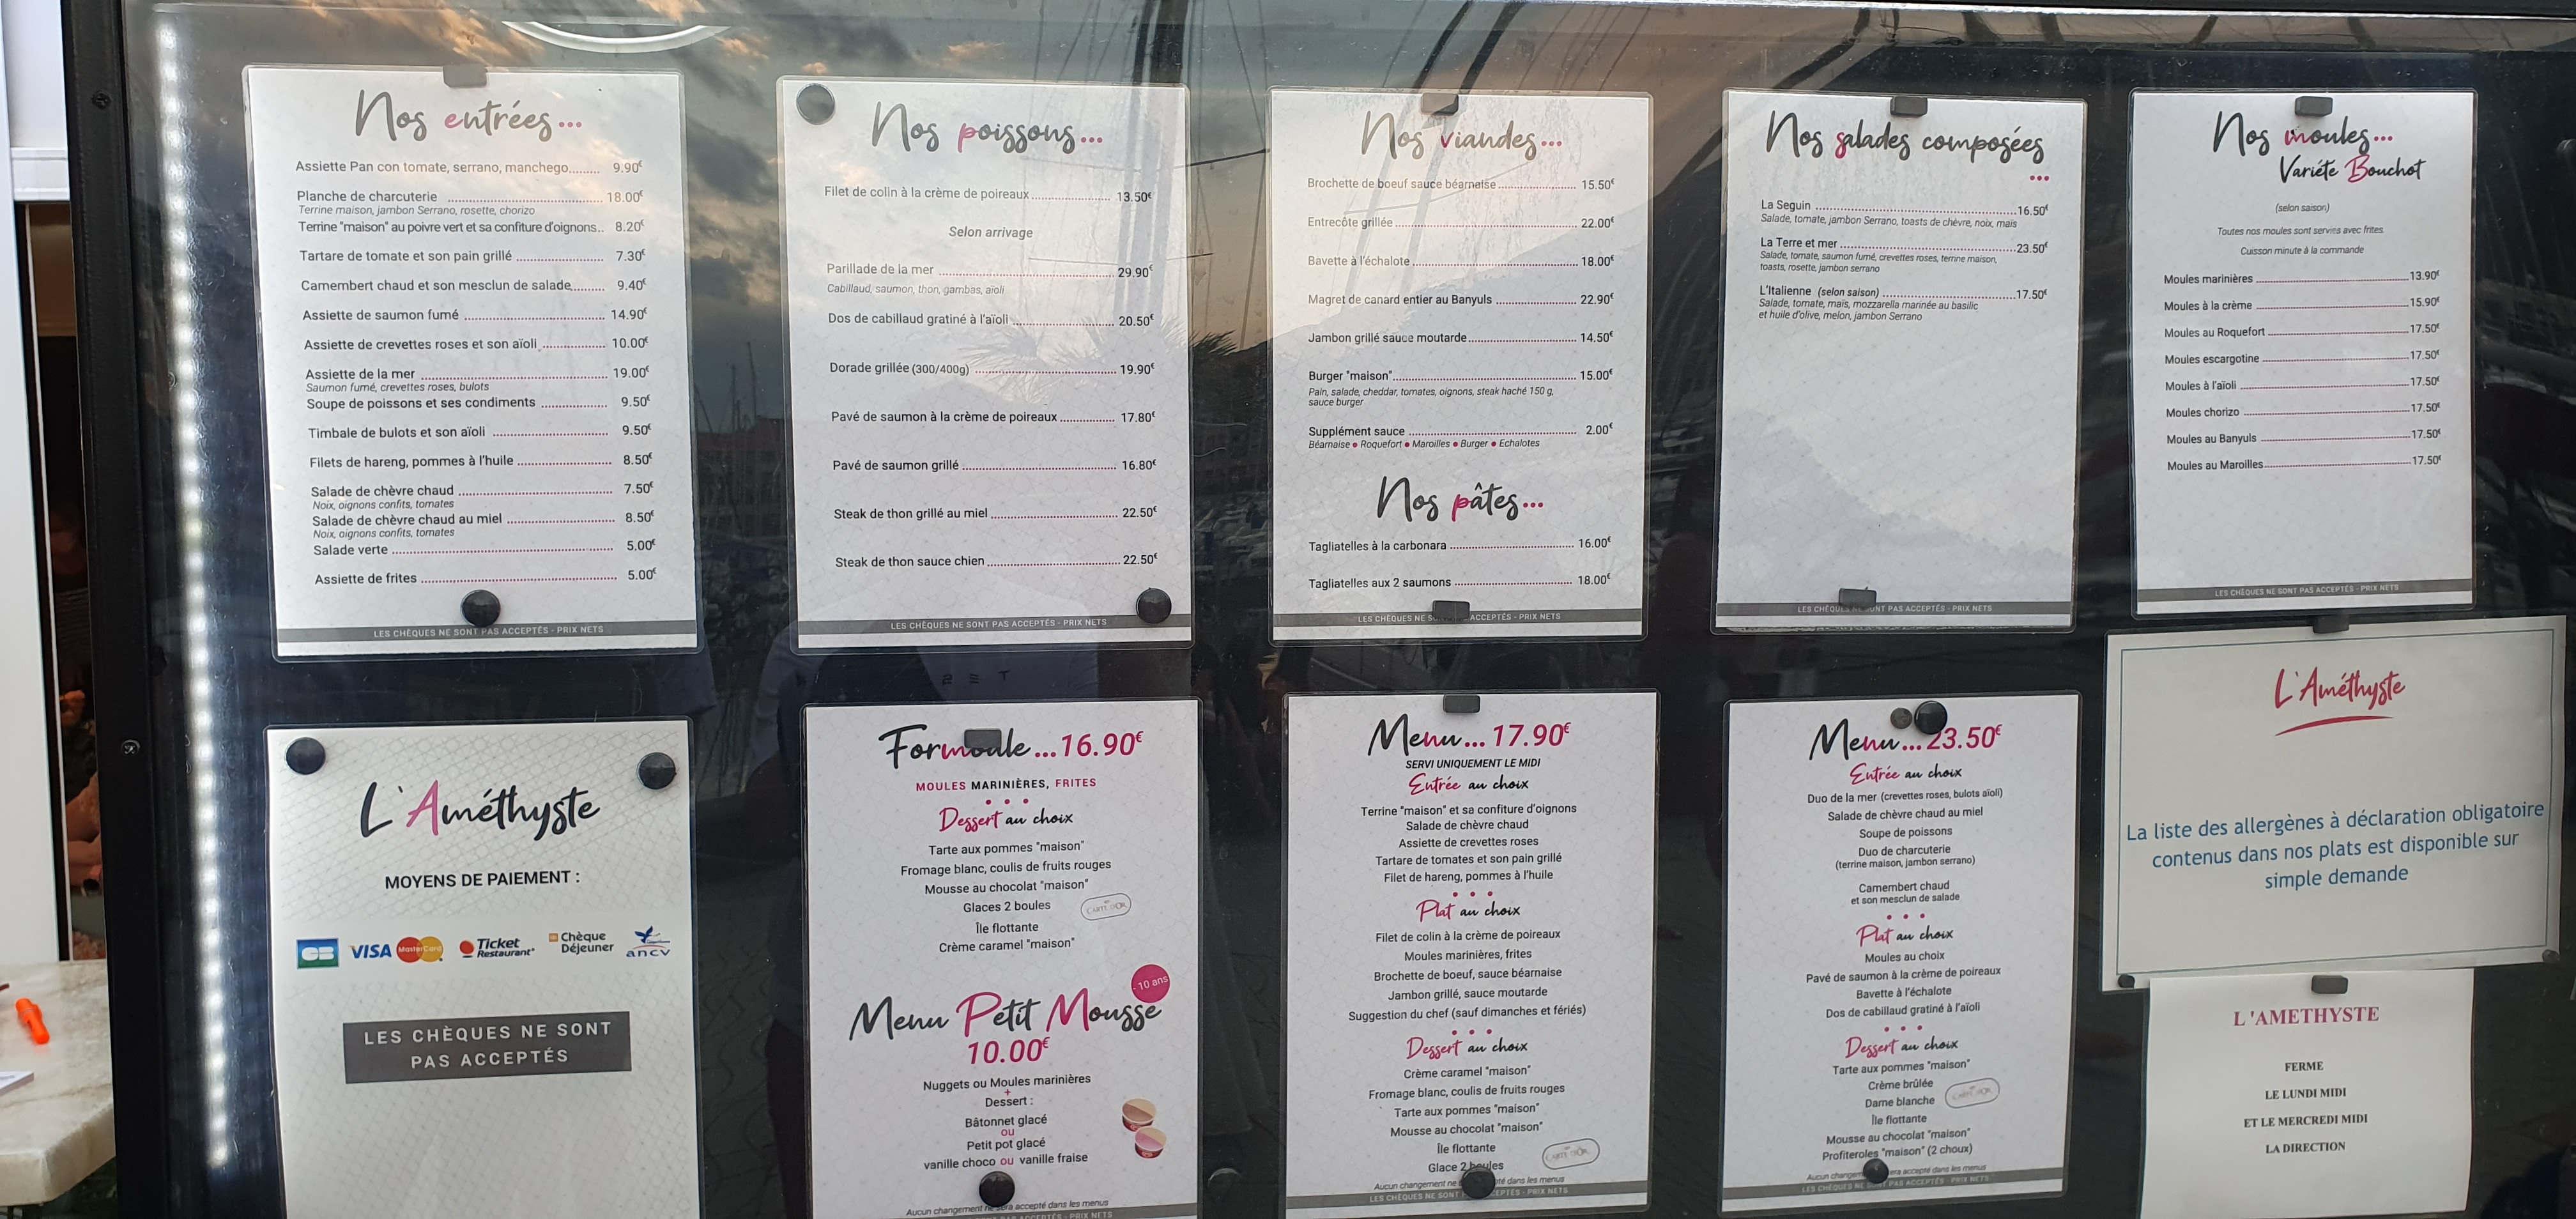 Nos entrées...
Assiette Pan con tomate, serrano, manchego......... 9.90€
Planche de charcuterie ........ 18.00€
Terrine maison, jambon Serrano, rosette, chorizo
Terrine "maison" au poivre vert et sa confiture d'oignons.. 8.20€
Tartare de tomate et son pain grillé ........ 7.30€
Camembert chaud et son mesclun de salade........ 9.40€
Assiette de saumon fumé ........ 14.90€
Assiette de crevettes roses et son aïoli ........ 10.00€
Assiette de la mer ........ 19.00€
Saumon fumé, crevettes roses, bulots
Soupe de poissons et ses condiments ........ 9.50€
Timbale de bulots et son aïoli ........ 9.50€
Filets de hareng, pommes à l'huile ........ 8.50€
Salade de chèvre chaud ........ 7.50€
Noix, oignons confits, tomates
Salade de chèvre chaud au miel ........ 8.50€
Noix, oignons confits, tomates
Salade verte ........ 5.00€
Assiette de frites ........ 5.00€
LES CHÈQUES NE SONT PAS ACCEPTÉS - PRIX NETS
Nos poissons...
Filet de colin à la crème de poireaux ........ 13.50€
Selon arrivage
Parillade de la mer ........ 29.90€
Cabillaud, saumon, thon, gambas, aïoli
Dos de cabillaud gratiné à l'aïoli ........ 20.50€
Dorade grillée (300/400g) ........ 19.90€
Pavé de saumon à la crème de poireaux ........ 17.80€
Pavé de saumon grillé ........ 16.80€
Steak de thon grillé au miel ........ 22.50€
Steak de thon sauce chien ........ 22.50€
LES CHÈQUES NE SONT PAS ACCEPTÉS - PRIX NETS
Nos viandes...
Brochette de boeuf sauce béarnaise ........ 15.50€
Entrecôte grillée ........ 22.00€
Bavette à l'échalote ........ 18.00€
Magret de canard entier au Banyuls ........ 22.90€
Jambon grillé sauce moutarde ........ 14.50€
Burger "maison" ........ 15.00€
Pain, salade, cheddar, tomates, oignons, steak haché 150 g,
sauce burger
Supplément sauce ........ 2.00€
Béarnaise • Roquefort • Maroilles • Burger • Echalotes
Nos pâtes...
Tagliatelles à la carbonara ........ 16.00€
Tagliatelles aux 2 saumons ........ 18.00€
LES CHÈQUES NE ACCEPTÉS - PRIX NETS
Nos salades composées
...
La Seguin ........ 16.50€
Salade, tomate, jambon Serrano, toasts de chèvre, noix, maïs
La Terre et mer ........ 23.50€
Salade, tomate, saumon fumé, crevettes roses, terrine maison,
toasts, rosette, jambon serrano
L'Italienne (selon saison) ........ 17.50€
Salade, tomate, maïs, mozzarella marinée au basilic
et huile d'olive, melon, jambon Serrano
LES CHÈQUES NE SONT PAS ACCEPTÉS - PRIX NETS
Nos moules...
Variéte Bouchot
(selon saison)
Toutes nos moules sont servies avec frites.
Cuisson minute à la commande
Moules marinières ........ 13.90€
Moules à la crème ........ 15.90€
Moules au Roquefort ........ 17.50€
Moules escargotine ........ 17.50€
Moules à l'aïoli ........ 17.50€
Moules chorizo ........ 17.50€
Moules au Banyuls ........ 17.50€
Moules au Maroilles ........ 17.50€
LES CHÈQUES NE SONT PAS ACCEPTÉS - PRIX NETS
L'Améthyste
MOYENS DE PAIEMENT :
CB VISA MasterCard Ticket Restaurant Chèque Déjeuner ancv
LES CHÈQUES NE SONT
PAS ACCEPTÉS
Formoule...16.90€
MOULES MARINIÈRES, FRITES
Dessert au choix
Tarte aux pommes "maison"
Fromage blanc, coulis de fruits rouges
Mousse au chocolat "maison"
Glaces 2 boules CARTE D'OR
Île flottante
Crème caramel "maison"
- 10 ans
Menu Petit Mousse
10.00€
Nuggets ou Moules marinières
+
Dessert :
Bâtonnet glacé
ou
Petit pot glacé
vanille choco ou vanille fraise
Aucun changement ne sera accepté dans les menus
PAS ACCEPTÉS - PRIX NETS
Menu...17.90€
SERVI UNIQUEMENT LE MIDI
Entrée au choix
Terrine "maison" et sa confiture d'oignons
Salade de chèvre chaud
Assiette de crevettes roses
Tartare de tomates et son pain grillé
Filet de hareng, pommes à l'huile
Plat au choix
Filet de colin à la crème de poireaux
Moules marinières, frites
Brochette de boeuf, sauce béarnaise
Jambon grillé, sauce moutarde
Suggestion du chef (sauf dimanches et fériés)
Dessert au choix
Crème caramel "maison"
Fromage blanc, coulis de fruits rouges
Tarte aux pommes "maison"
Mousse au chocolat "maison"
Île flottante
Glace 2 boules CARTE D'OR
Aucun changement ne dans les menus
LES CHÈQUES NE SONT - PRIX NETS
Menu...23.50€
Entrée au choix
Duo de la mer (crevettes roses, bulots aïoli)
Salade de chèvre chaud au miel
Soupe de poissons
Duo de charcuterie
(terrine maison, jambon serrano)
Camembert chaud
et son mesclun de salade
Plat au choix
Moules au choix
Pavé de saumon à la crème de poireaux
Bavette à l'échalote
Dos de cabillaud gratiné à l'aïoli
Dessert au choix
Tarte aux pommes "maison"
Crème brûlée
Dame blanche CARTE D'OR
Île flottante
Mousse au chocolat "maison"
Profiteroles "maison" (2 choux)
Aucun sera accepté dans les menus
LES CHÈQUES NE PAS ACCEPTÉS - PRIX NETS
L'Améthyste
La liste des allergènes à déclaration obligatoire
contenus dans nos plats est disponible sur
simple demande
L 'AMETHYSTE
FERME
LE LUNDI MIDI
ET LE MERCREDI MIDI
LA DIRECTION